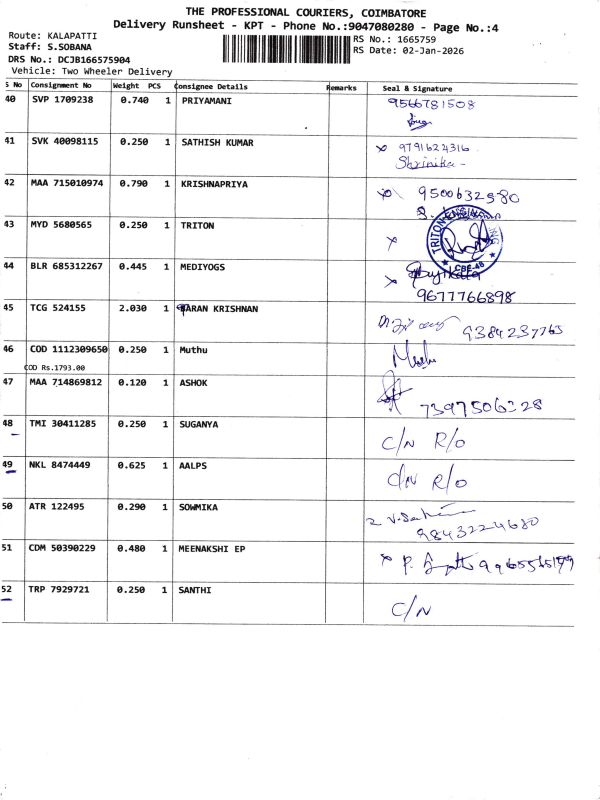 THE PROFESSIONAL COURIERS, COIMBATORE
Delivery Runsheet - KPT - Phone No.:9047080280 - Page No.:4
Route: KALAPATTI
RS No.: 1665759
Staff: S.SOBANA
RS Date: 02-Jan-2026
DRS No.: DCJB166575904
Vehicle: Two Wheeler Delivery
S No Consignment No Weight PCS Consignee Details Remarks Seal & Signature
40 SVP 1709238 0.740 1 PRIYAMANI 9566781508
41 SVK 40098115 0.250 1 SATHISH KUMAR x 9791624316
Shrinika -
42 MAA 715010974 0.790 1 KRISHNAPRIYA x 9500632980
43 MYD 5680565 0.250 1 TRITON x TRITON CBE-48
44 BLR 685312267 0.445 1 MEDIYOGS x
9677766898
45 TCG 524155 2.030 1 KARAN KRISHNAN 9384237763
46 COD 1112309650 0.250 1 Muthu
COD Rs.1793.00
47 MAA 714869812 0.120 1 ASHOK 7397506328
48 TMI 30411285 0.250 1 SUGANYA C/N R/O
49 NKL 8474449 0.625 1 AALPS C/N R/O
50 ATR 122495 0.290 1 SOWMIKA
9843224680
51 CDM 50390229 0.480 1 MEENAKSHI EP x P.
52 TRP 7929721 0.250 1 SANTHI C/N